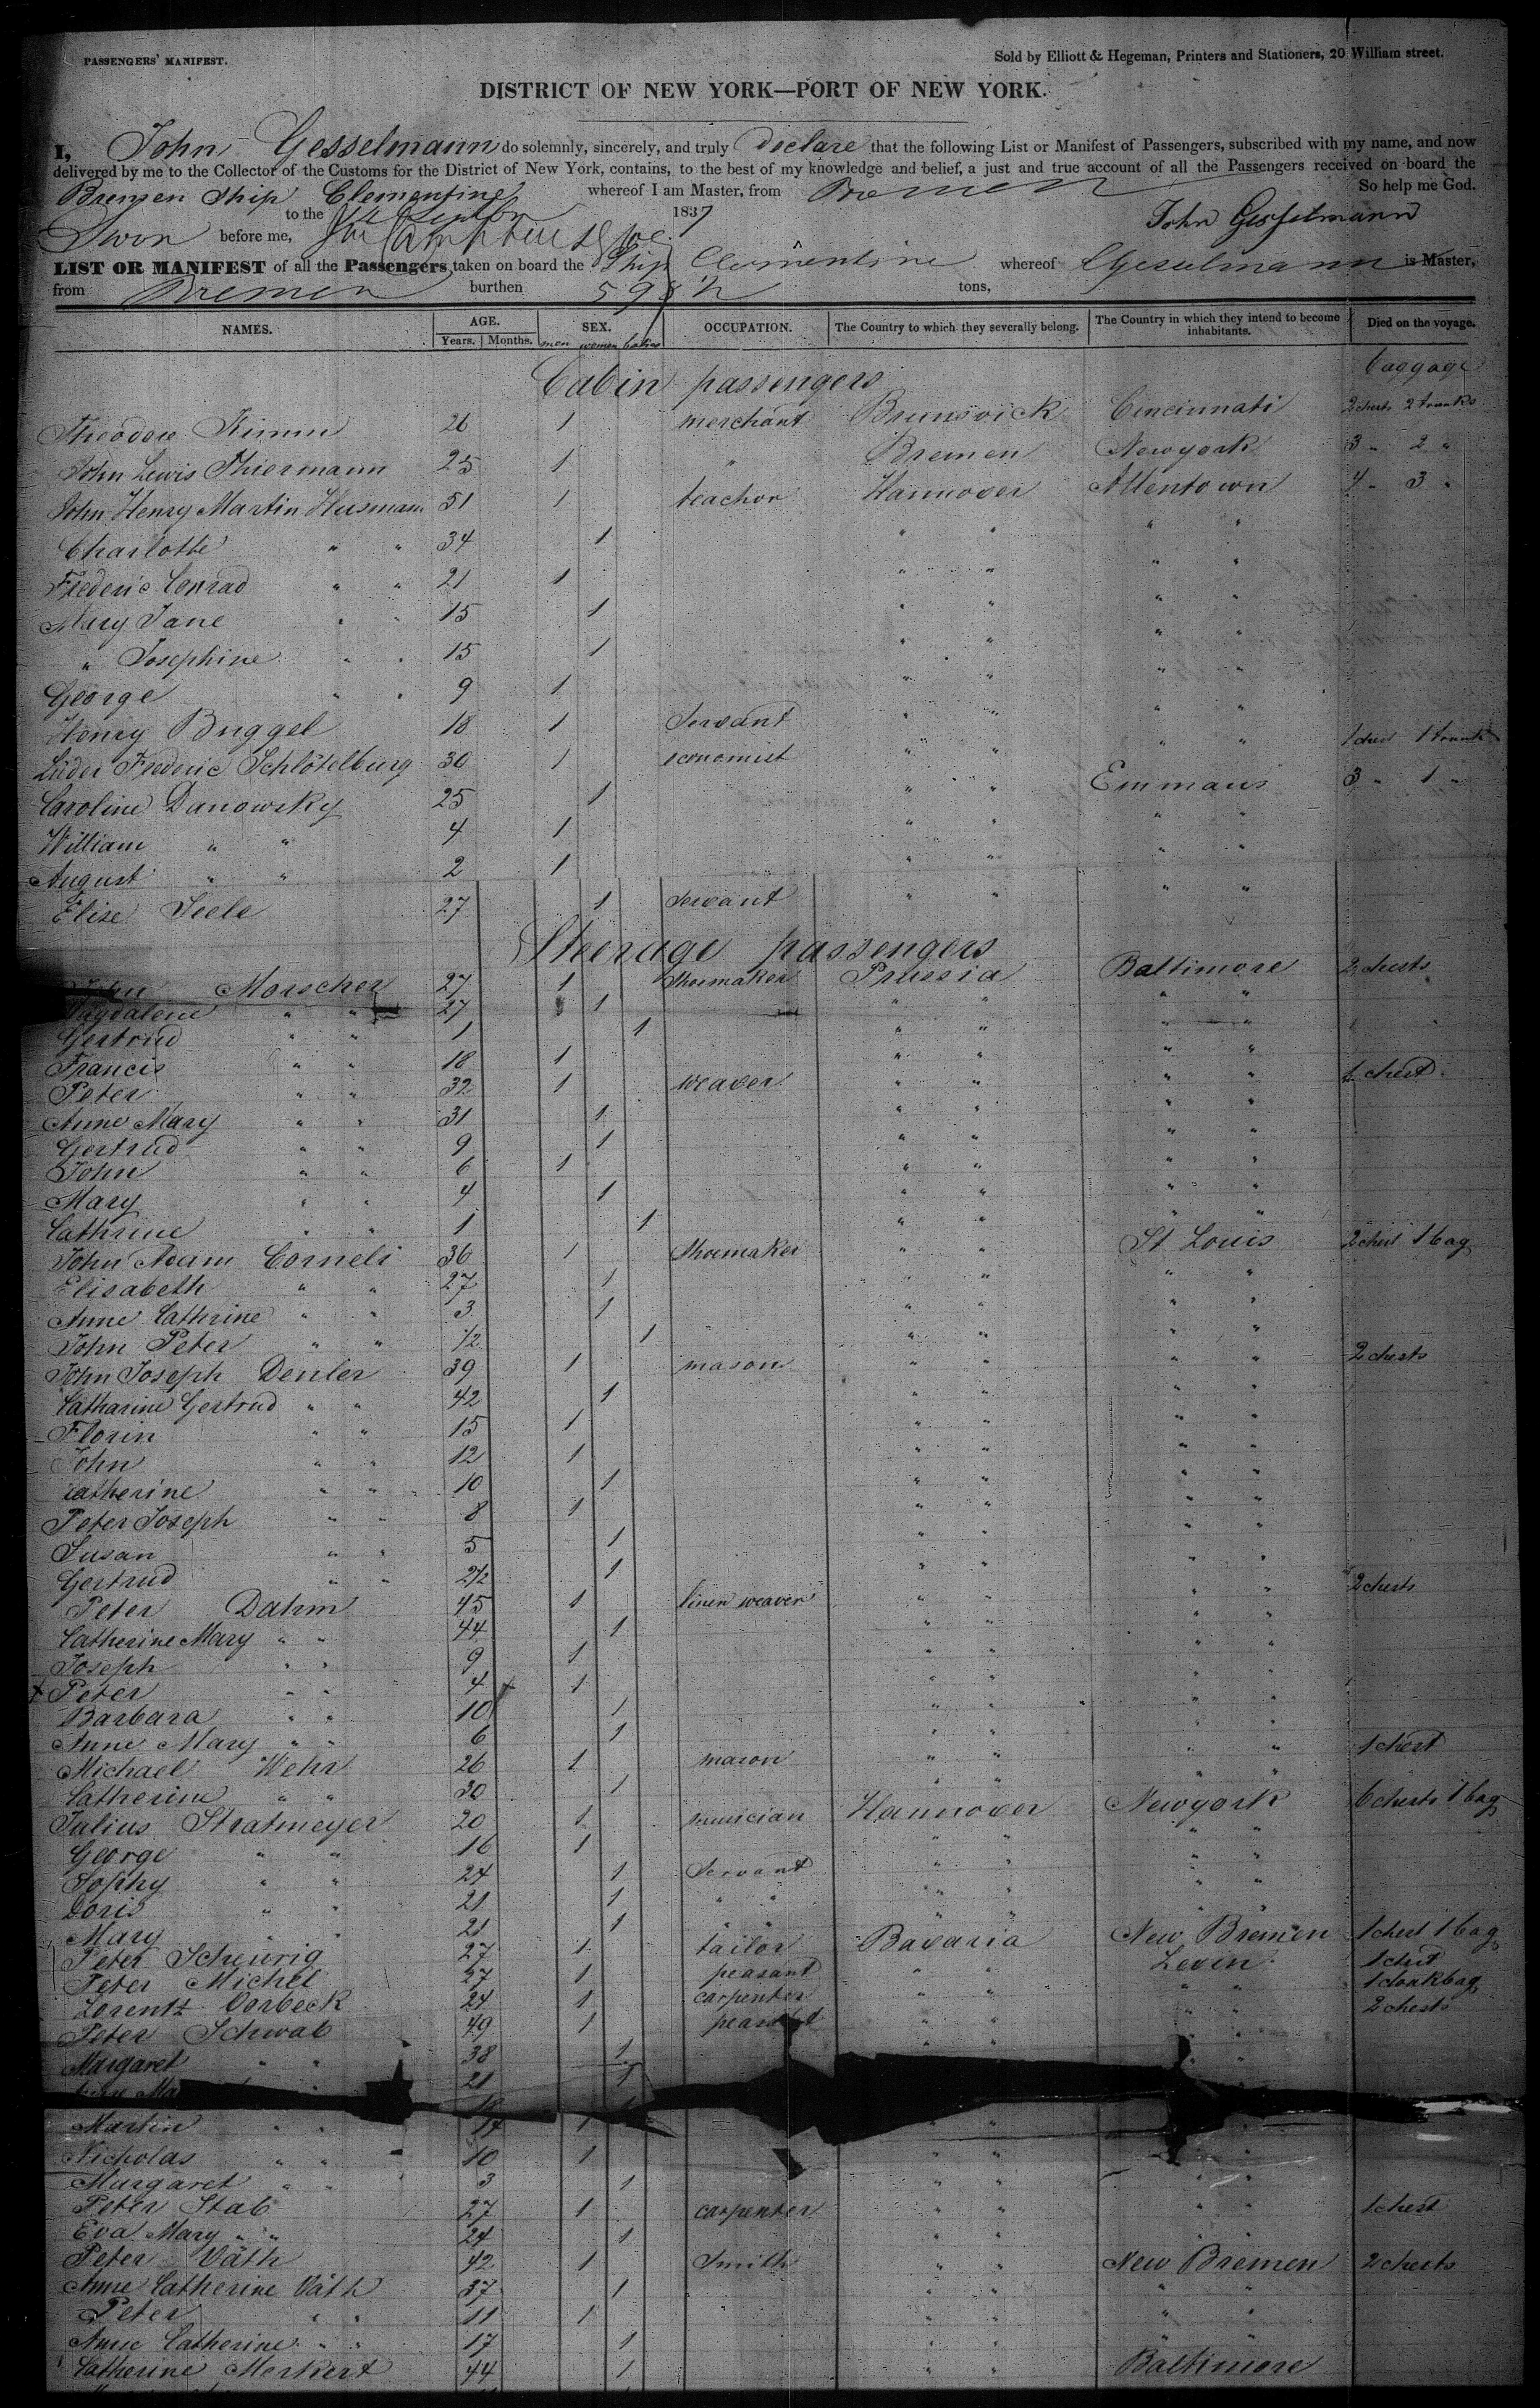 PASSENGERS' MANIFEST. Sold by Elliott & Hegeman, Printers and Stationers, 20 William street.
DISTRICT OF NEW YORK—PORT OF NEW YORK.
I, John Gesselmann do solemnly, sincerely, and truly declare that the following List or Manifest of Passengers, subscribed with my name, and now
delivered by me to the Collector of the Customs for the District of New York, contains, to the best of my knowledge and belief, a just and true account of all the Passengers received on board the
Bremen Ship Clementine whereof I am Master, from Bremen So help me God.
to the 1837 John Gesselmann
Sworn before me,
LIST OR MANIFEST of all the Passengers taken on board the Ship Clementine whereof Gesselmann is Master,
from Bremen burthen tons,
NAMES. AGE. SEX. OCCUPATION. The Country to which they severally belong. The Country in which they intend to become inhabitants. Died on the voyage.
Years. Months. men women babies
Cabin passengers baggage
Theodore Kimm 26 1 merchant Brunsvick Cincinnati 2 chests 2 trunks
John Lewis Thiermann 25 1 " Bremen Newyork 3 " 2 "
John Henry Martin Husmann 51 1 teacher Hannover Allentown 4 " 3 "
Charlotte " " 34 1 " " " "
Frederic Conrad " " 21 1 " " " "
Mary Jane " " 15 1 " " " "
" Josephine " " 15 1 " " " "
George " " 9 1 " " " "
Henry Buggel 18 1 Servant " " " "
Lüder Frederic Schlötelburg 30 1 economist " " " " 1 chest 1 trunk
Caroline Danowsky 25 1 " " Emmaus 3 " 1 "
William " " 4 1 " " " "
August " " 2 1 " " " "
Elise Seele 27 1 Servant " " " "
Steerage passengers
John Morscher 27 1 Shoemaker Prussia Baltimore 2 chests
Magdalene " " 27 1 " " " "
Gertrud " " 1 1 " " " "
Francis " " 18 1 " " " "
Peter " " 32 1 weaver " " " " 1 chest
Anne Mary " " 31 1 " " " "
Gertrud " " 9 1 " " " "
John " " 6 1 " " " "
Mary " " 4 1 " " " "
Cathrine " " 1 1 " " " "
John Adam Corneli 36 1 Shoemaker " " St Louis 2 chest 1 bag
Elisabeth " " 27 1 " " " "
Anne Cathrine " " 3 1 " " " "
John Peter " " 1/2 1 " " " "
John Joseph Denler 39 1 mason " " " " 2 chests
Catharine Gertrud " " 42 1 " " " "
Florin " " 15 1 " " " "
John " " 12 1 " " " "
Catherine " " 10 1 " " " "
Peter Joseph " " 8 1 " " " "
Susan " " 5 1 " " " "
Gertrud " " 2 1/2 1 " " " "
Peter Dahm 45 1 linen weaver " " " " 2 chests
Catherine Mary " " 44 1 " " " "
Joseph " " 9 1 " " " "
x Peter " " 4 x 1 " " " "
Barbara " " 10 1 " " " "
Anne Mary " " 6 1 " " " "
Michael Wehr 26 1 mason " " " " 1 chest
Catherine " " 30 1 " " " "
Julius Stratmeyer 20 1 musician Hannover Newyork 6 chests 1 bag
George " " 16 1 " " " "
Sophy " " 24 1 Servant " " " "
Doris " " 21 1 " " " " " "
Mary " " 21 1 " " " " " "
Peter Scheurig 27 1 tailor Bavaria New Bremen 1 chest 1 bag
Peter Michel 27 1 peasant " " Levin 1 chest
Lorentz Vorbeck 24 1 carpenter " " " "
Peter Schwab 49 1 peasant " " " " 2 chests
Margaret " " 38 1 " "
Anne Ma 21 1
Martin " " 14 1 " "
Nicholas " " 10 1 " "
Margaret " " 3 1 " " " "
Peter Stab 27 1 carpenter " " " " 1 chest
Eva Mary " " 24 1 " " " "
Peter Väth 42 1 Smith " " New Bremen 2 chests
Anne Catherine Väth 37 1 " " " "
Peter " " 11 1 " " " "
Anne Catherine " " 17 1 " " " "
Catherine Merkert 44 1 " " Baltimore